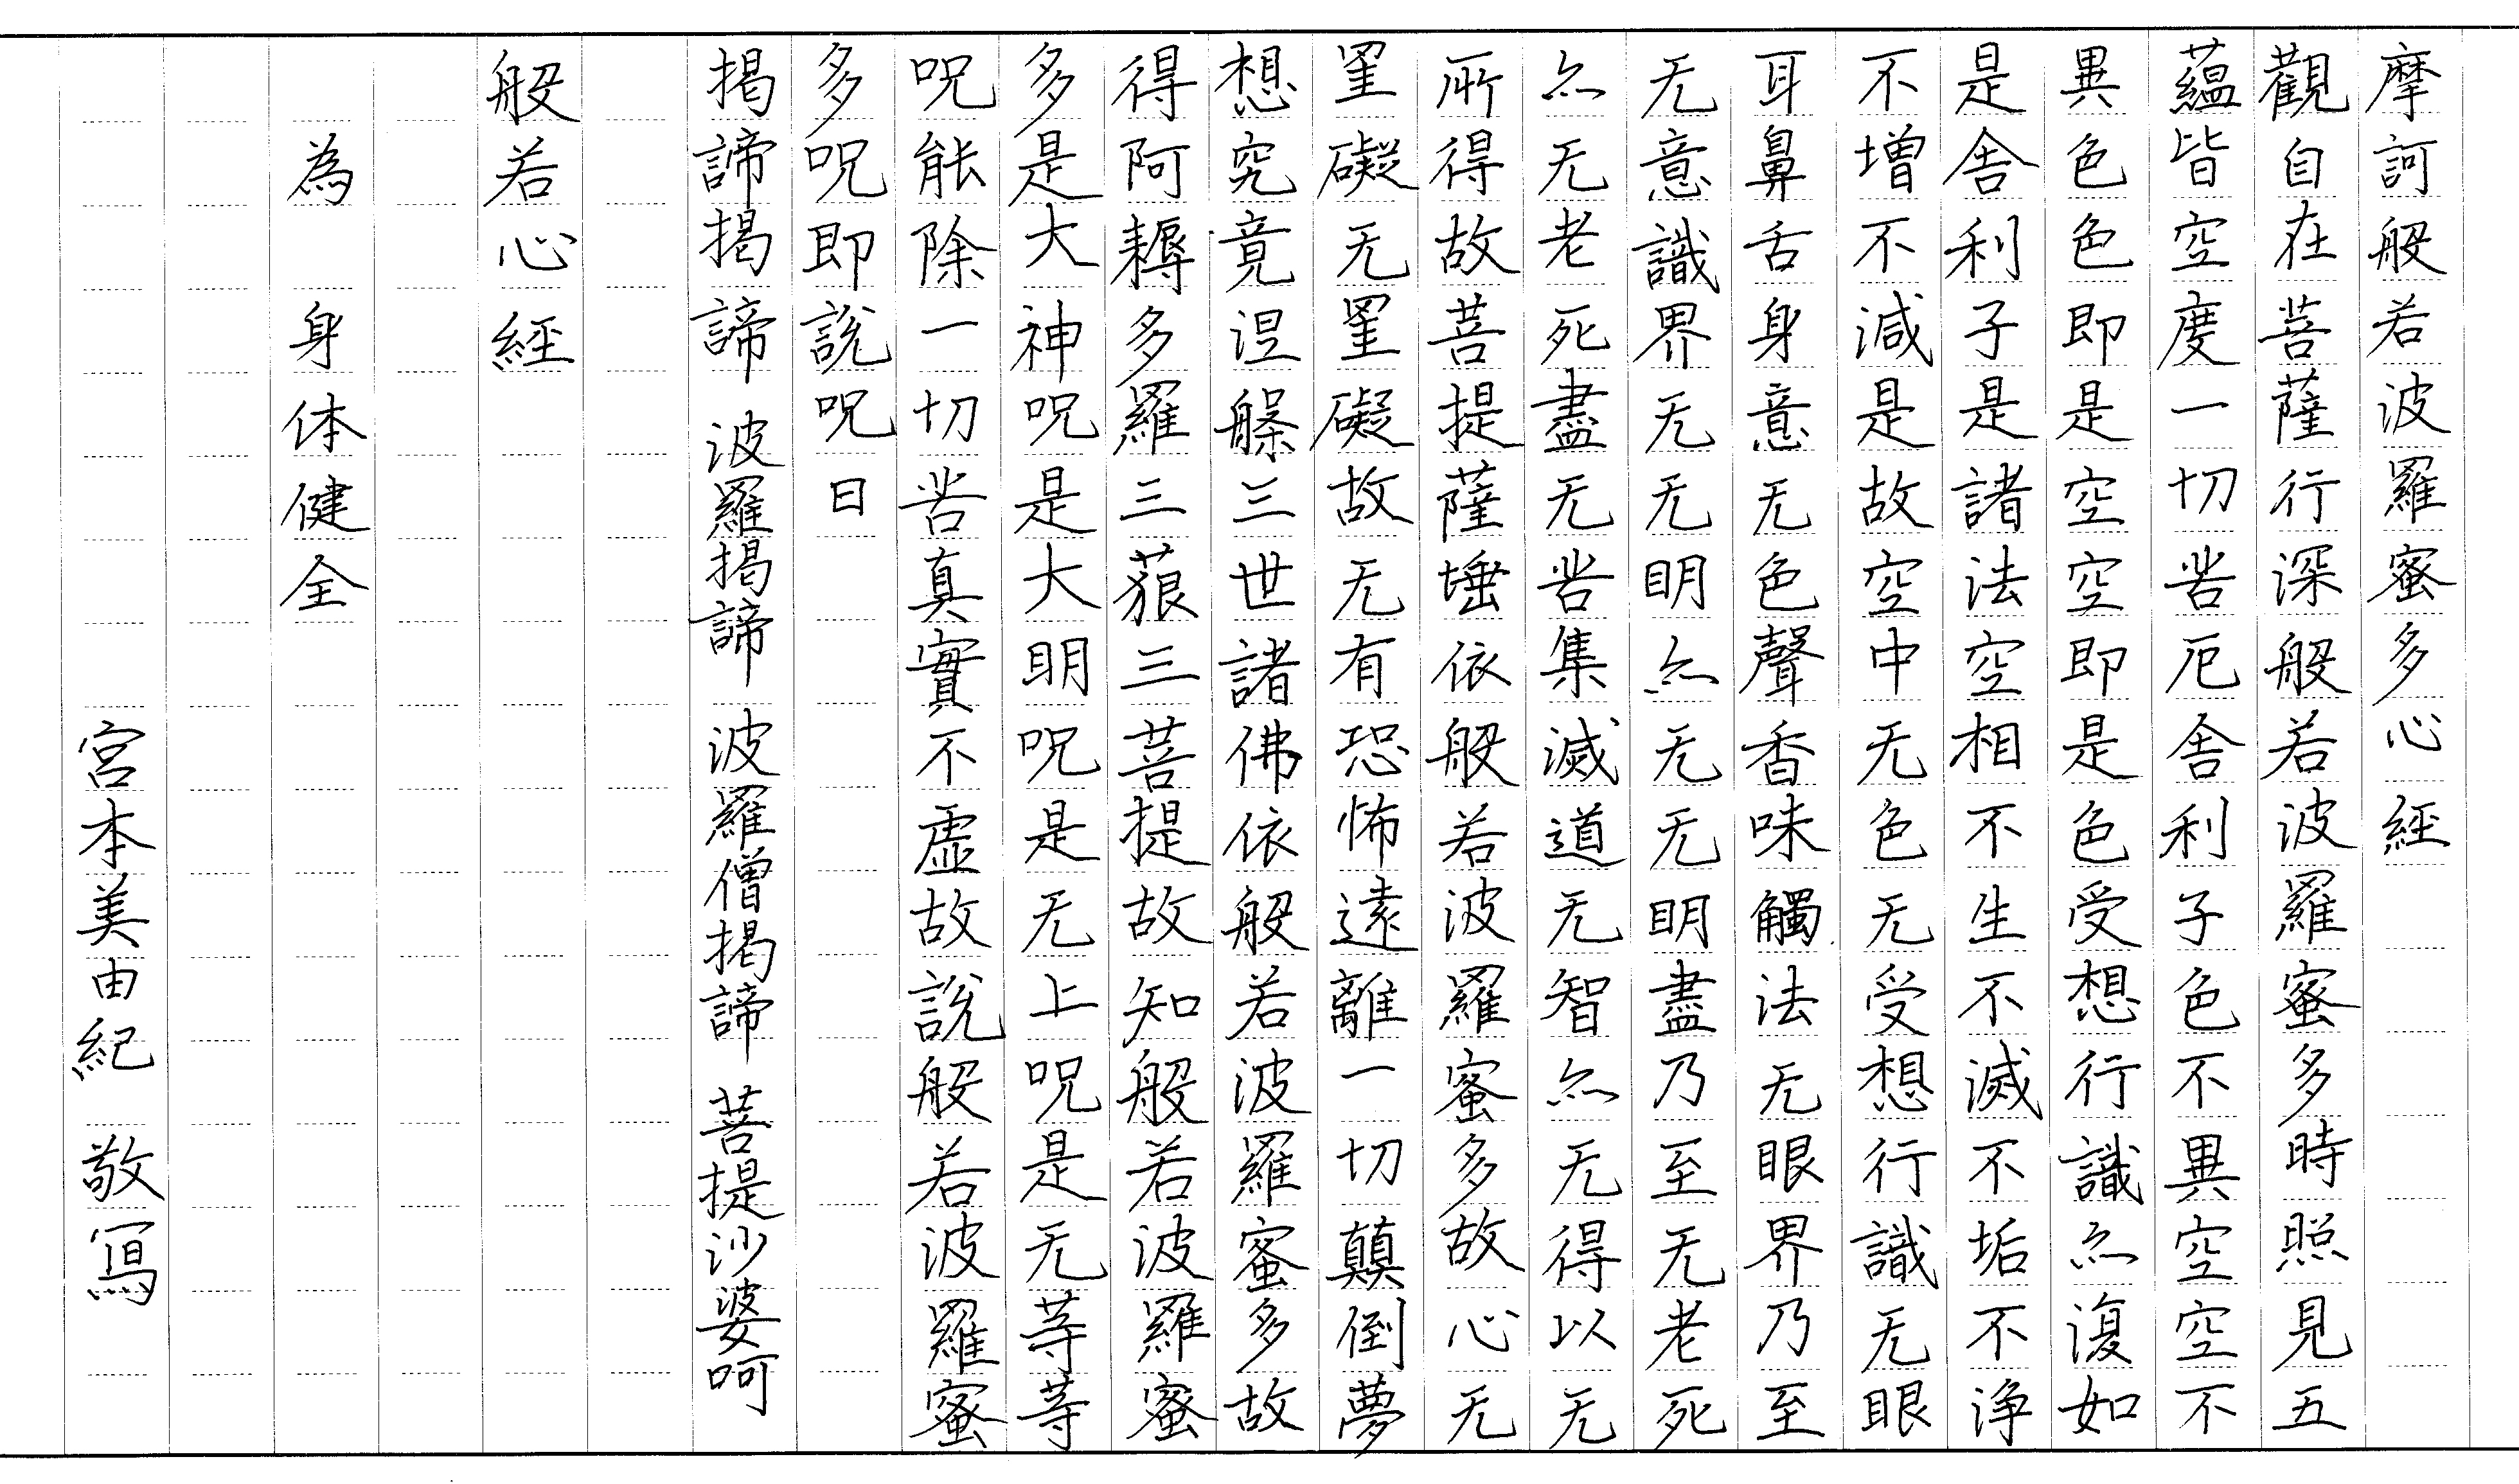 摩訶般若波羅蜜多心経
觀自在菩薩行深般若波羅蜜多時照見五
蘊皆空度一切苦厄舎利子色不異空空不
異色色即是空空即是色受想行識亦復如
是舎利子是諸法空相不生不滅不垢不浄
不増不減是故空中无色无受想行識无眼
耳鼻舌身意无色聲香味觸法无眼界乃至
无意識界无无明亦无无明盡乃至无老死
亦无老死盡无苦集滅道无智亦无得以无
所得故菩提薩埵依般若波羅蜜多故心无
罣礙无罣礙故无有恐怖遠離一切顛倒夢
想究竟涅槃三世諸佛依般若波羅蜜多故
得阿耨多羅三藐三菩提故知般若波羅蜜
多是大神呪是大明呪是无上呪是无等等
呪能除一切苦真實不虚故説般若波羅蜜
多呪即説呪曰
掲諦掲諦 波羅掲諦 波羅僧掲諦 菩提沙婆呵
般若心経
為 身体健全
宮本美由紀 敬写